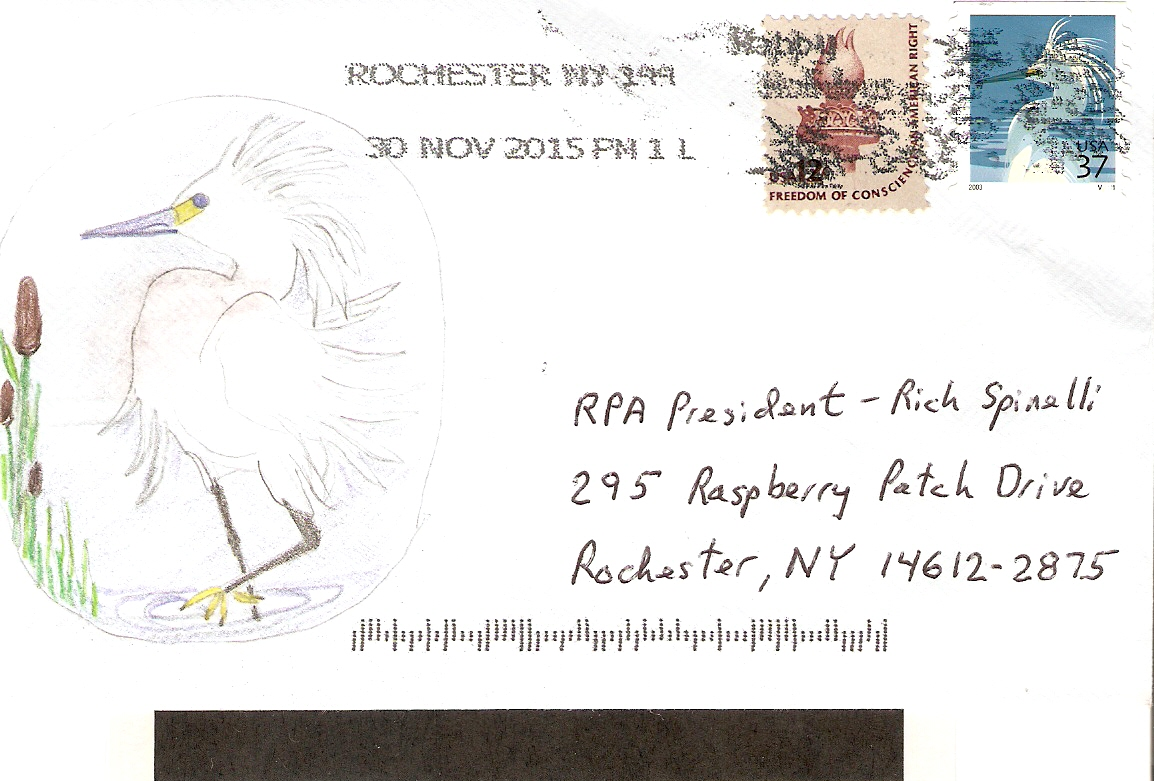 ROCHESTER NY 144
30 NOV 2015 PM 1 L
USA 12c
FREEDOM OF CONSCIENCE AN AMERICAN RIGHT
USA
37
2003
RPA President - Rich Spinelli
295 Raspberry Patch Drive
Rochester, NY 14612-2875